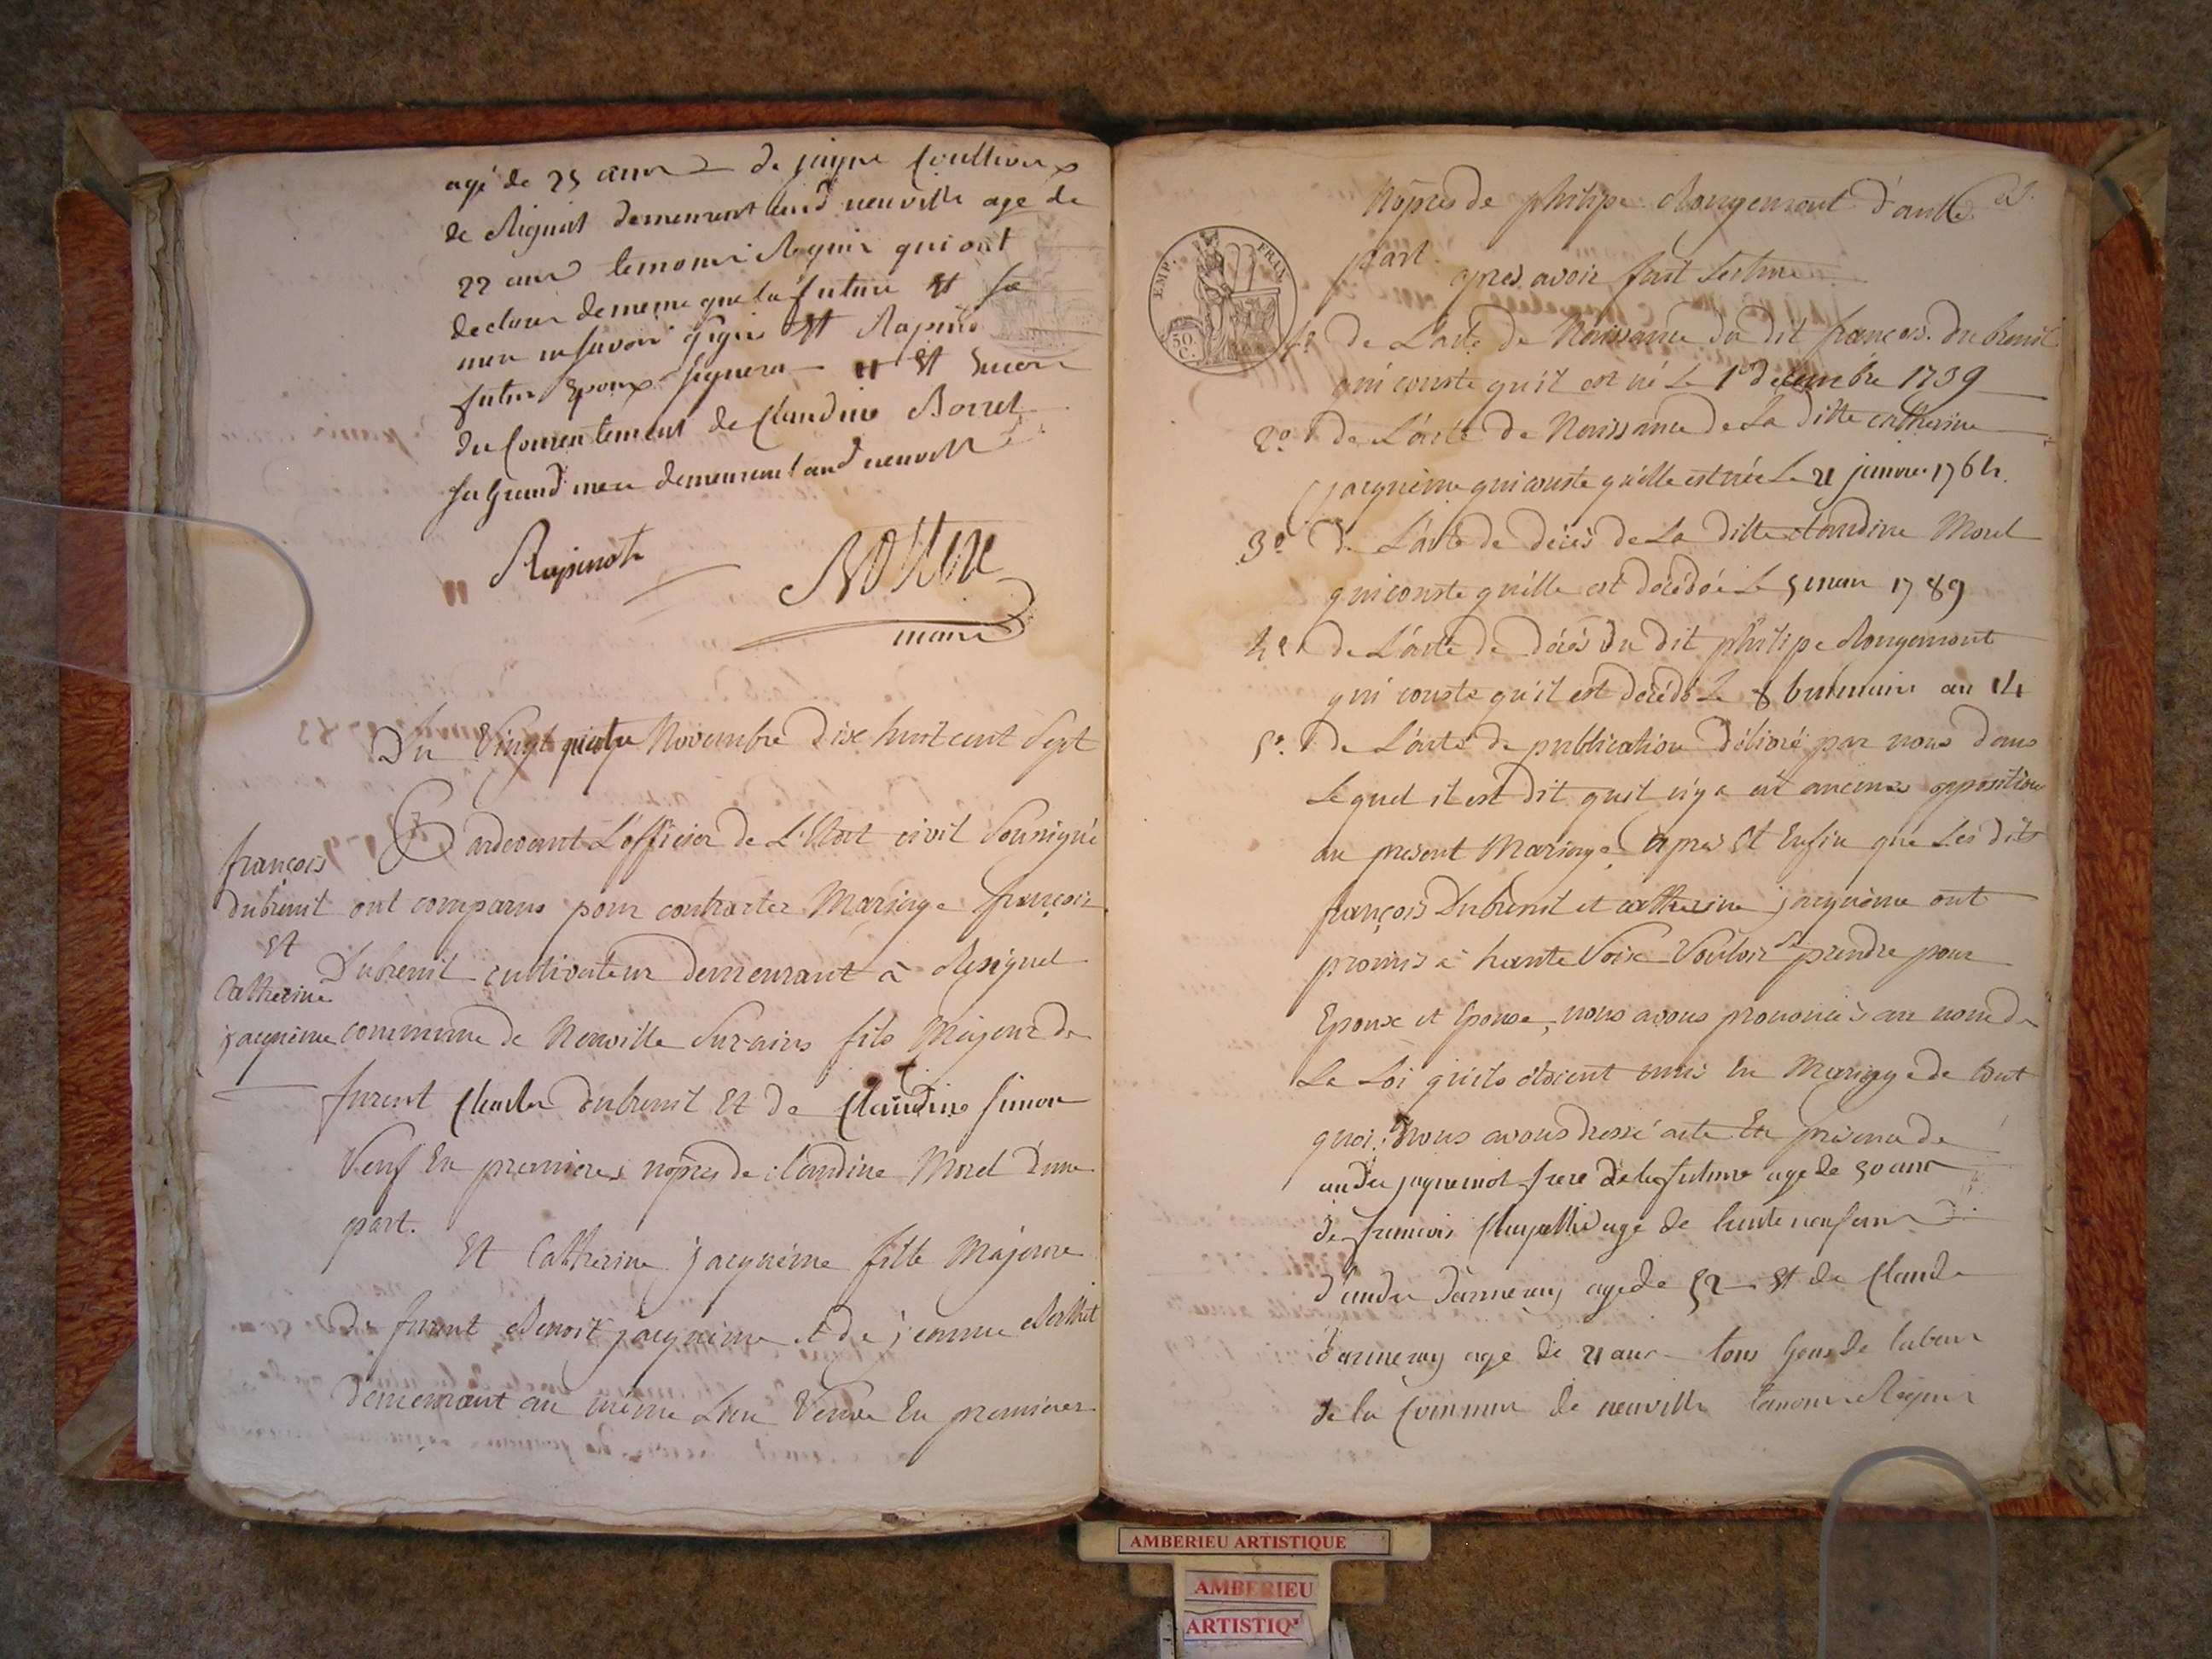 agé de 25 ans de
de Rignat demeurant aud neuville age de
22 ans temoins Requis qui ont
declarer de meme que la future et sa
mere ne savoir signer et Rapinot
futur Epoux signera et Encore
du Consentement de Claudine Borret
sa grand mere demeurant aud neuville
Rapinot
maire
Du Vingt quatre Novembre dixe huit cent Sept
françois
Dubreuil
et
Catherine
jacquème
Pardevant L'officier de L'Etat civil Soussigné
ont comparus pour contracter Mariage françois
Dubreuil cultivateur demeurant à Resignel
commune de Neuville Sur ains fils Majeur de
furent Charles dubreuil Et de Claudine Simon
Veuf En premieres nopces de claudine Morel d'une
part.
Et Catherine jacquème fille Majeure
de furent Benoit jacquème et de jeanne Berthet
demeurant au même Lieu Veuve En premieres
Nopces de philipe Rougemont d'autre
part.
apres avoir fait lecture
EMP. FRAN.
50 C.
1º De L'acte de Naissance du dit françois dubreuil
qui conste qu'il est né Le 1er decembre 1739
2º De L'acte de Naissance de La ditte catherine
jacquème qui conste qu'elle est née Le 21 janvier 1764.
3º De L'acte de décès de La ditte claudine Morel
qui conste qu'elle est décédée Le 5 mars 1789
4º De L'acte de décès du dit philipe Rougemont
qui conste qu'il est décédé Le 8 brumaire an 14
5º De L'acte de publication délivré par nous dans
Le quel il est dit quil n'y a eût aucunes opposition
au present Mariage, apres Et Enfin que Les dits
françois Dubreuil et catherine jacquème ont
promis à haute Voixe Vouloir se prendre pour
Epoux et Epouse, nous avons prononcés au nom de
La Loi qu'ils étoient unis En Mariage de tout
quoi nous avons dressé acte En présence de
andre jaquemot frere de la future age de 50 ans
de francois Chapelle age de trente neuf ans
d'andre Darmeray age de 52 et de Claude
darmeray age de 21 ans tous gens de labeur
de la Commune de neuville temoins Requis
AMBERIEU ARTISTIQUE
AMBERIEU
ARTISTIQ